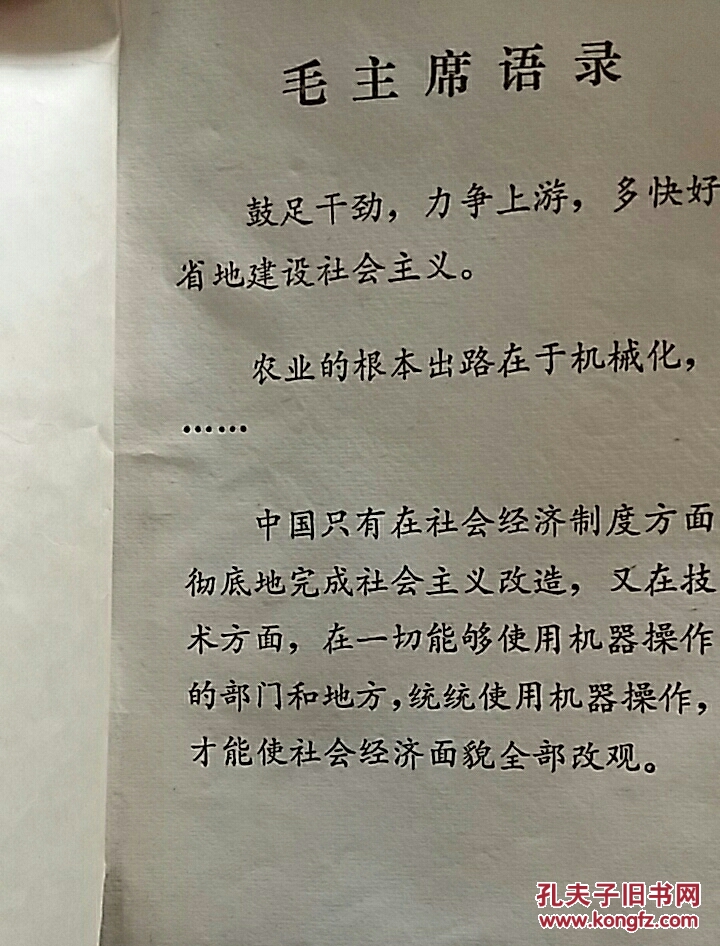 毛主席语录
鼓足干劲，力争上游，多快好
省地建设社会主义。
农业的根本出路在于机械化，
……
中国只有在社会经济制度方面
彻底地完成社会主义改造，又在技
术方面，在一切能够使用机器操作
的部门和地方，统统使用机器操作，
才能使社会经济面貌全部改观。
孔夫子旧书网
www.kongfz.com